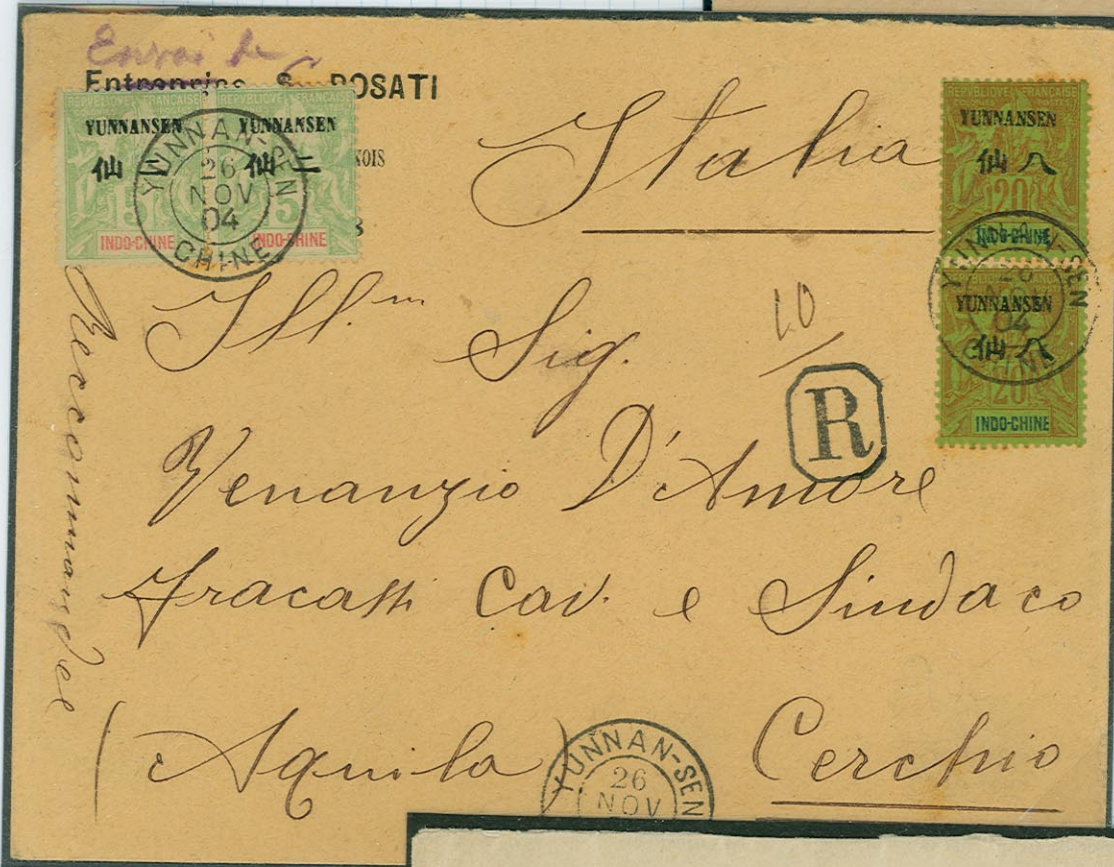 Envoi de
Entreprise S. ROSATI
NOIS
REPVBLIQVE FRANÇAISE
YUNNANSEN
仙
5
INDO-CHINE
REPVBLIQVE FRANÇAISE
YUNNANSEN
仙二
5
INDO-CHINE
YUNNAN-SEN
26
NOV
04
CHINE
Italia
REPVBLIQVE FRANÇAISE
COLONIES POSTES
YUNNANSEN
仙八
20
INDO-CHINE
YUNNANSEN
仙八
20
INDO-CHINE
YUNNAN-SEN
26
NOV
04
CHINE
Ill.m Sig.
10
R
Venanzio D'Amore
Fracassi Cav. e Sindaco
(Aquila) Cerchio
Reccommandee
YUNNAN-SEN
26
NOV